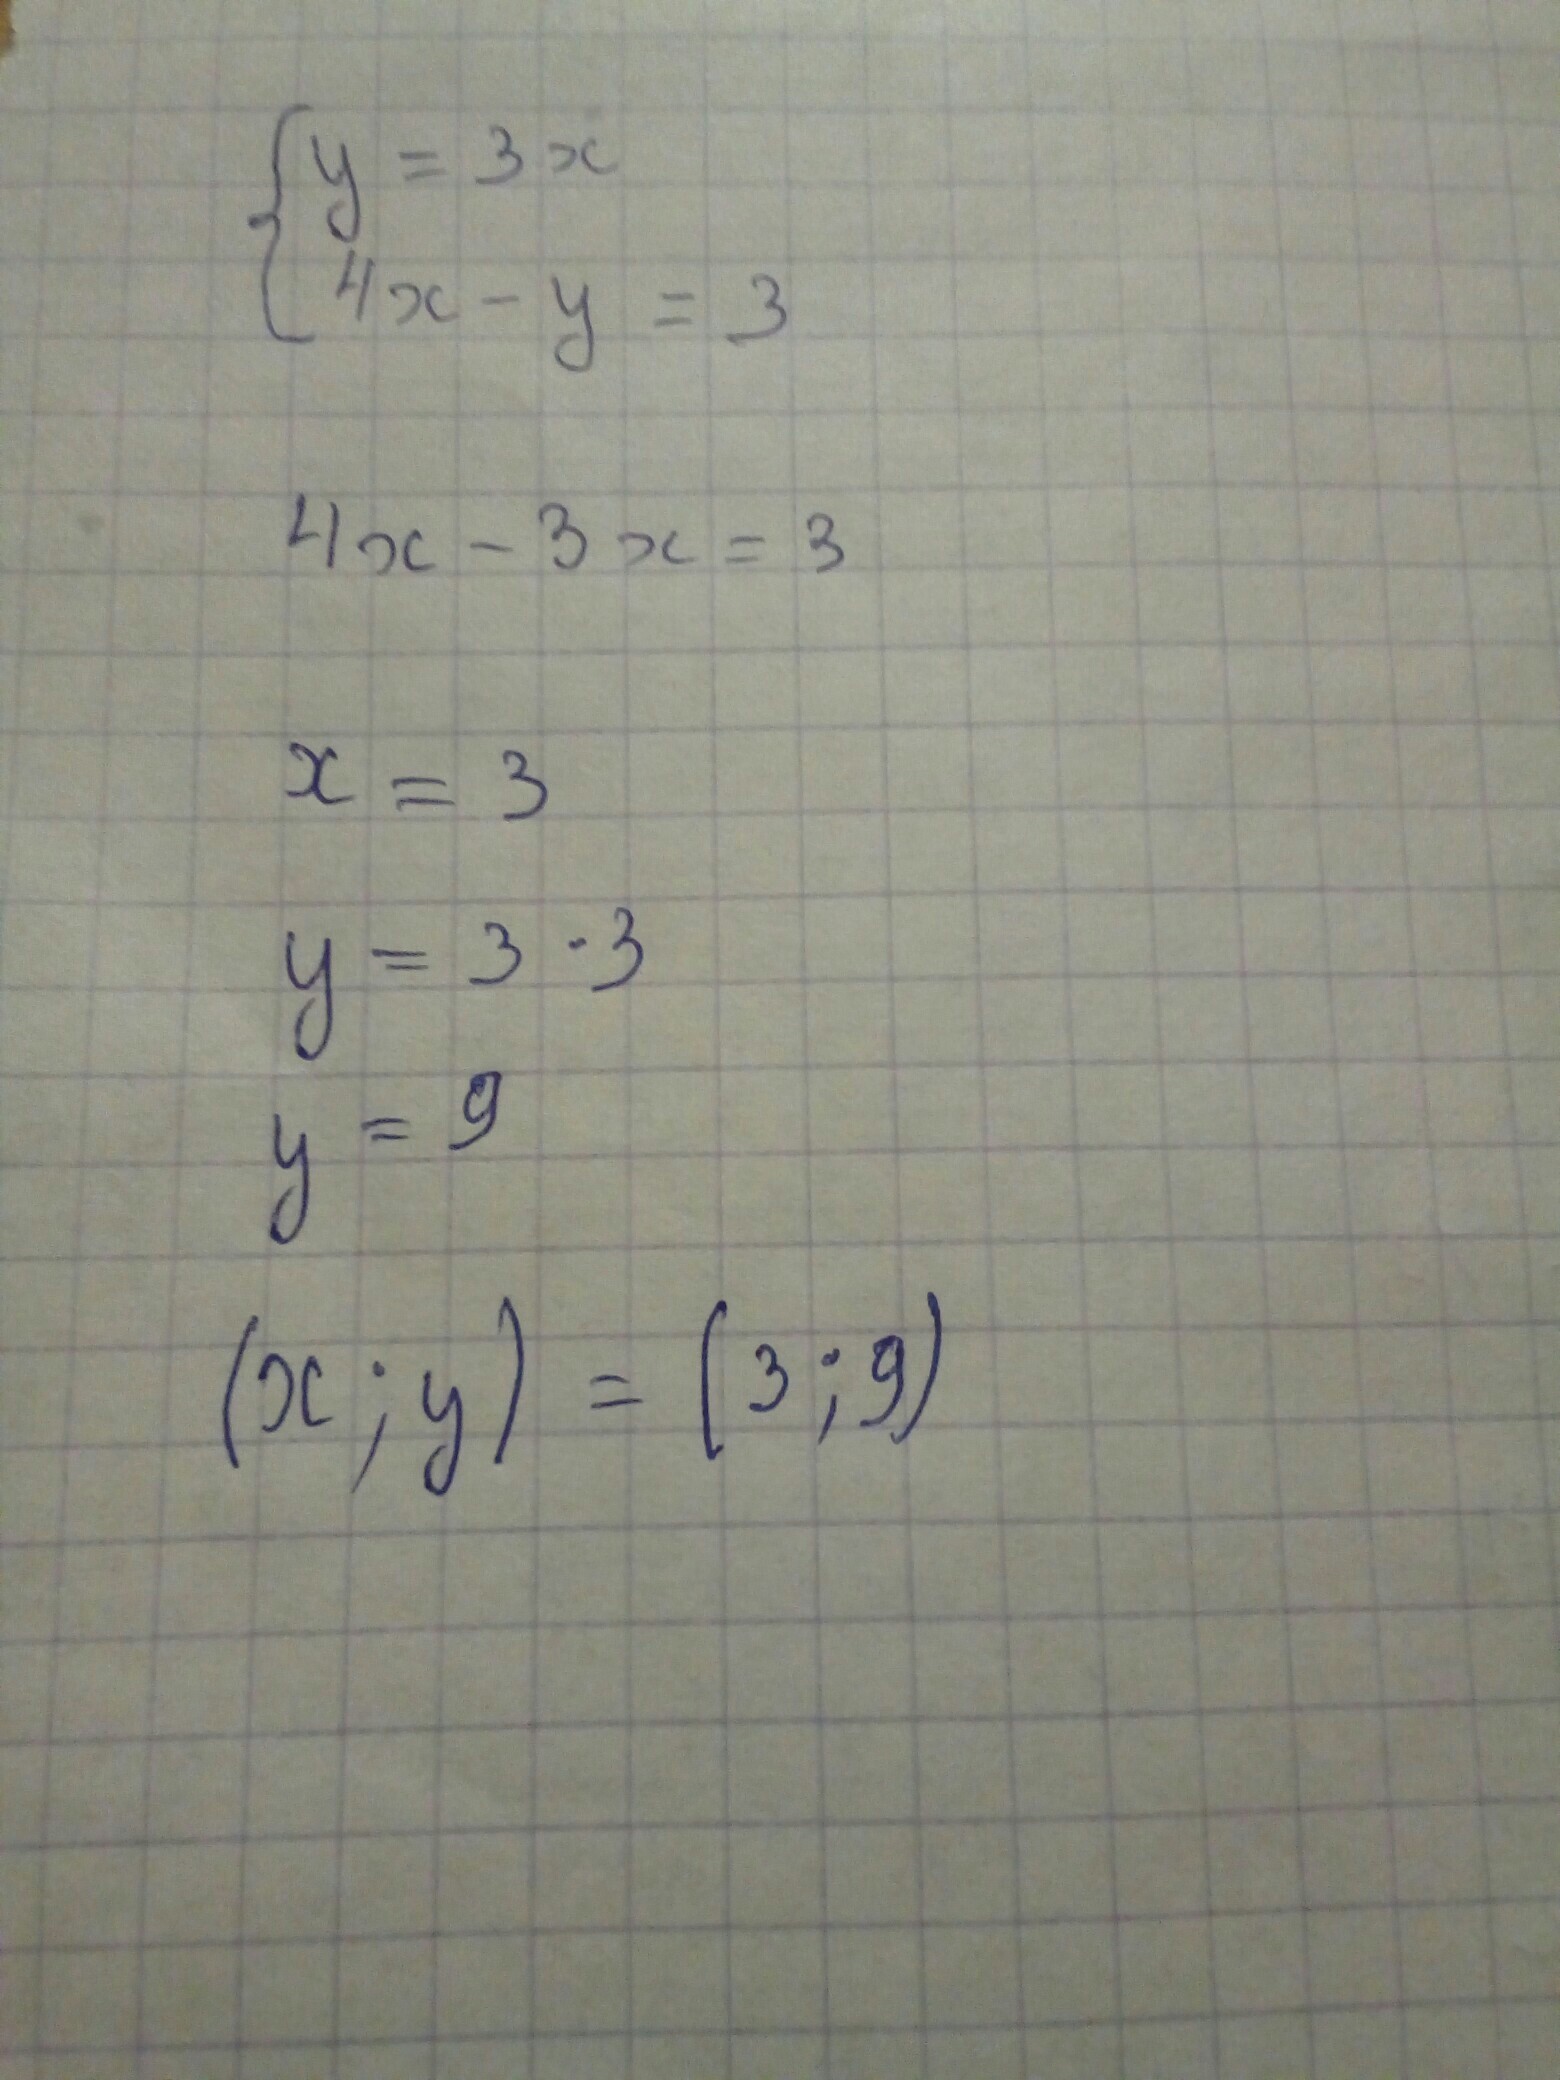 { y = 3x
4x - y = 3
4x - 3x = 3
x = 3
y = 3 · 3
y = 9
(x ; y) = (3 ; 9)